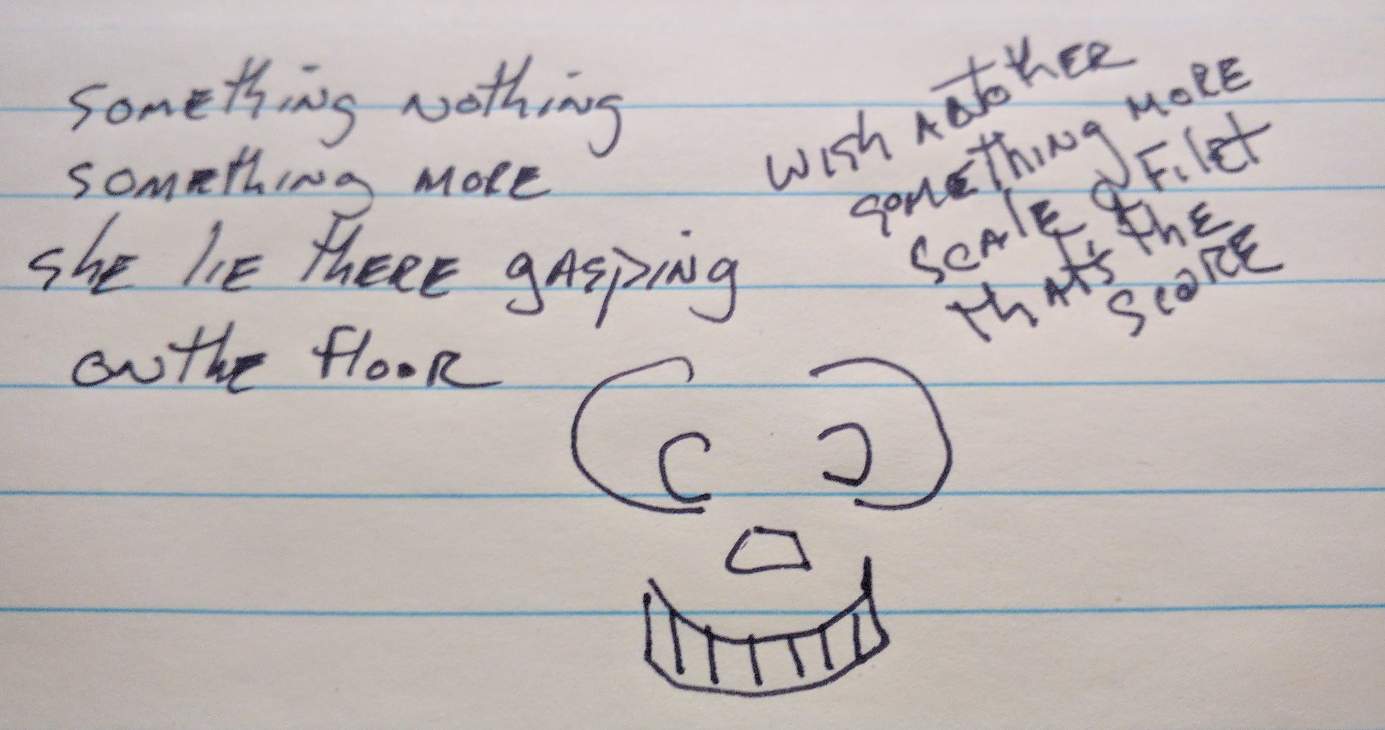 Something Nothing
Something More
She lie There gasping
on the floor
Wish Another
Something More
Scale & Filet
that's the
Score